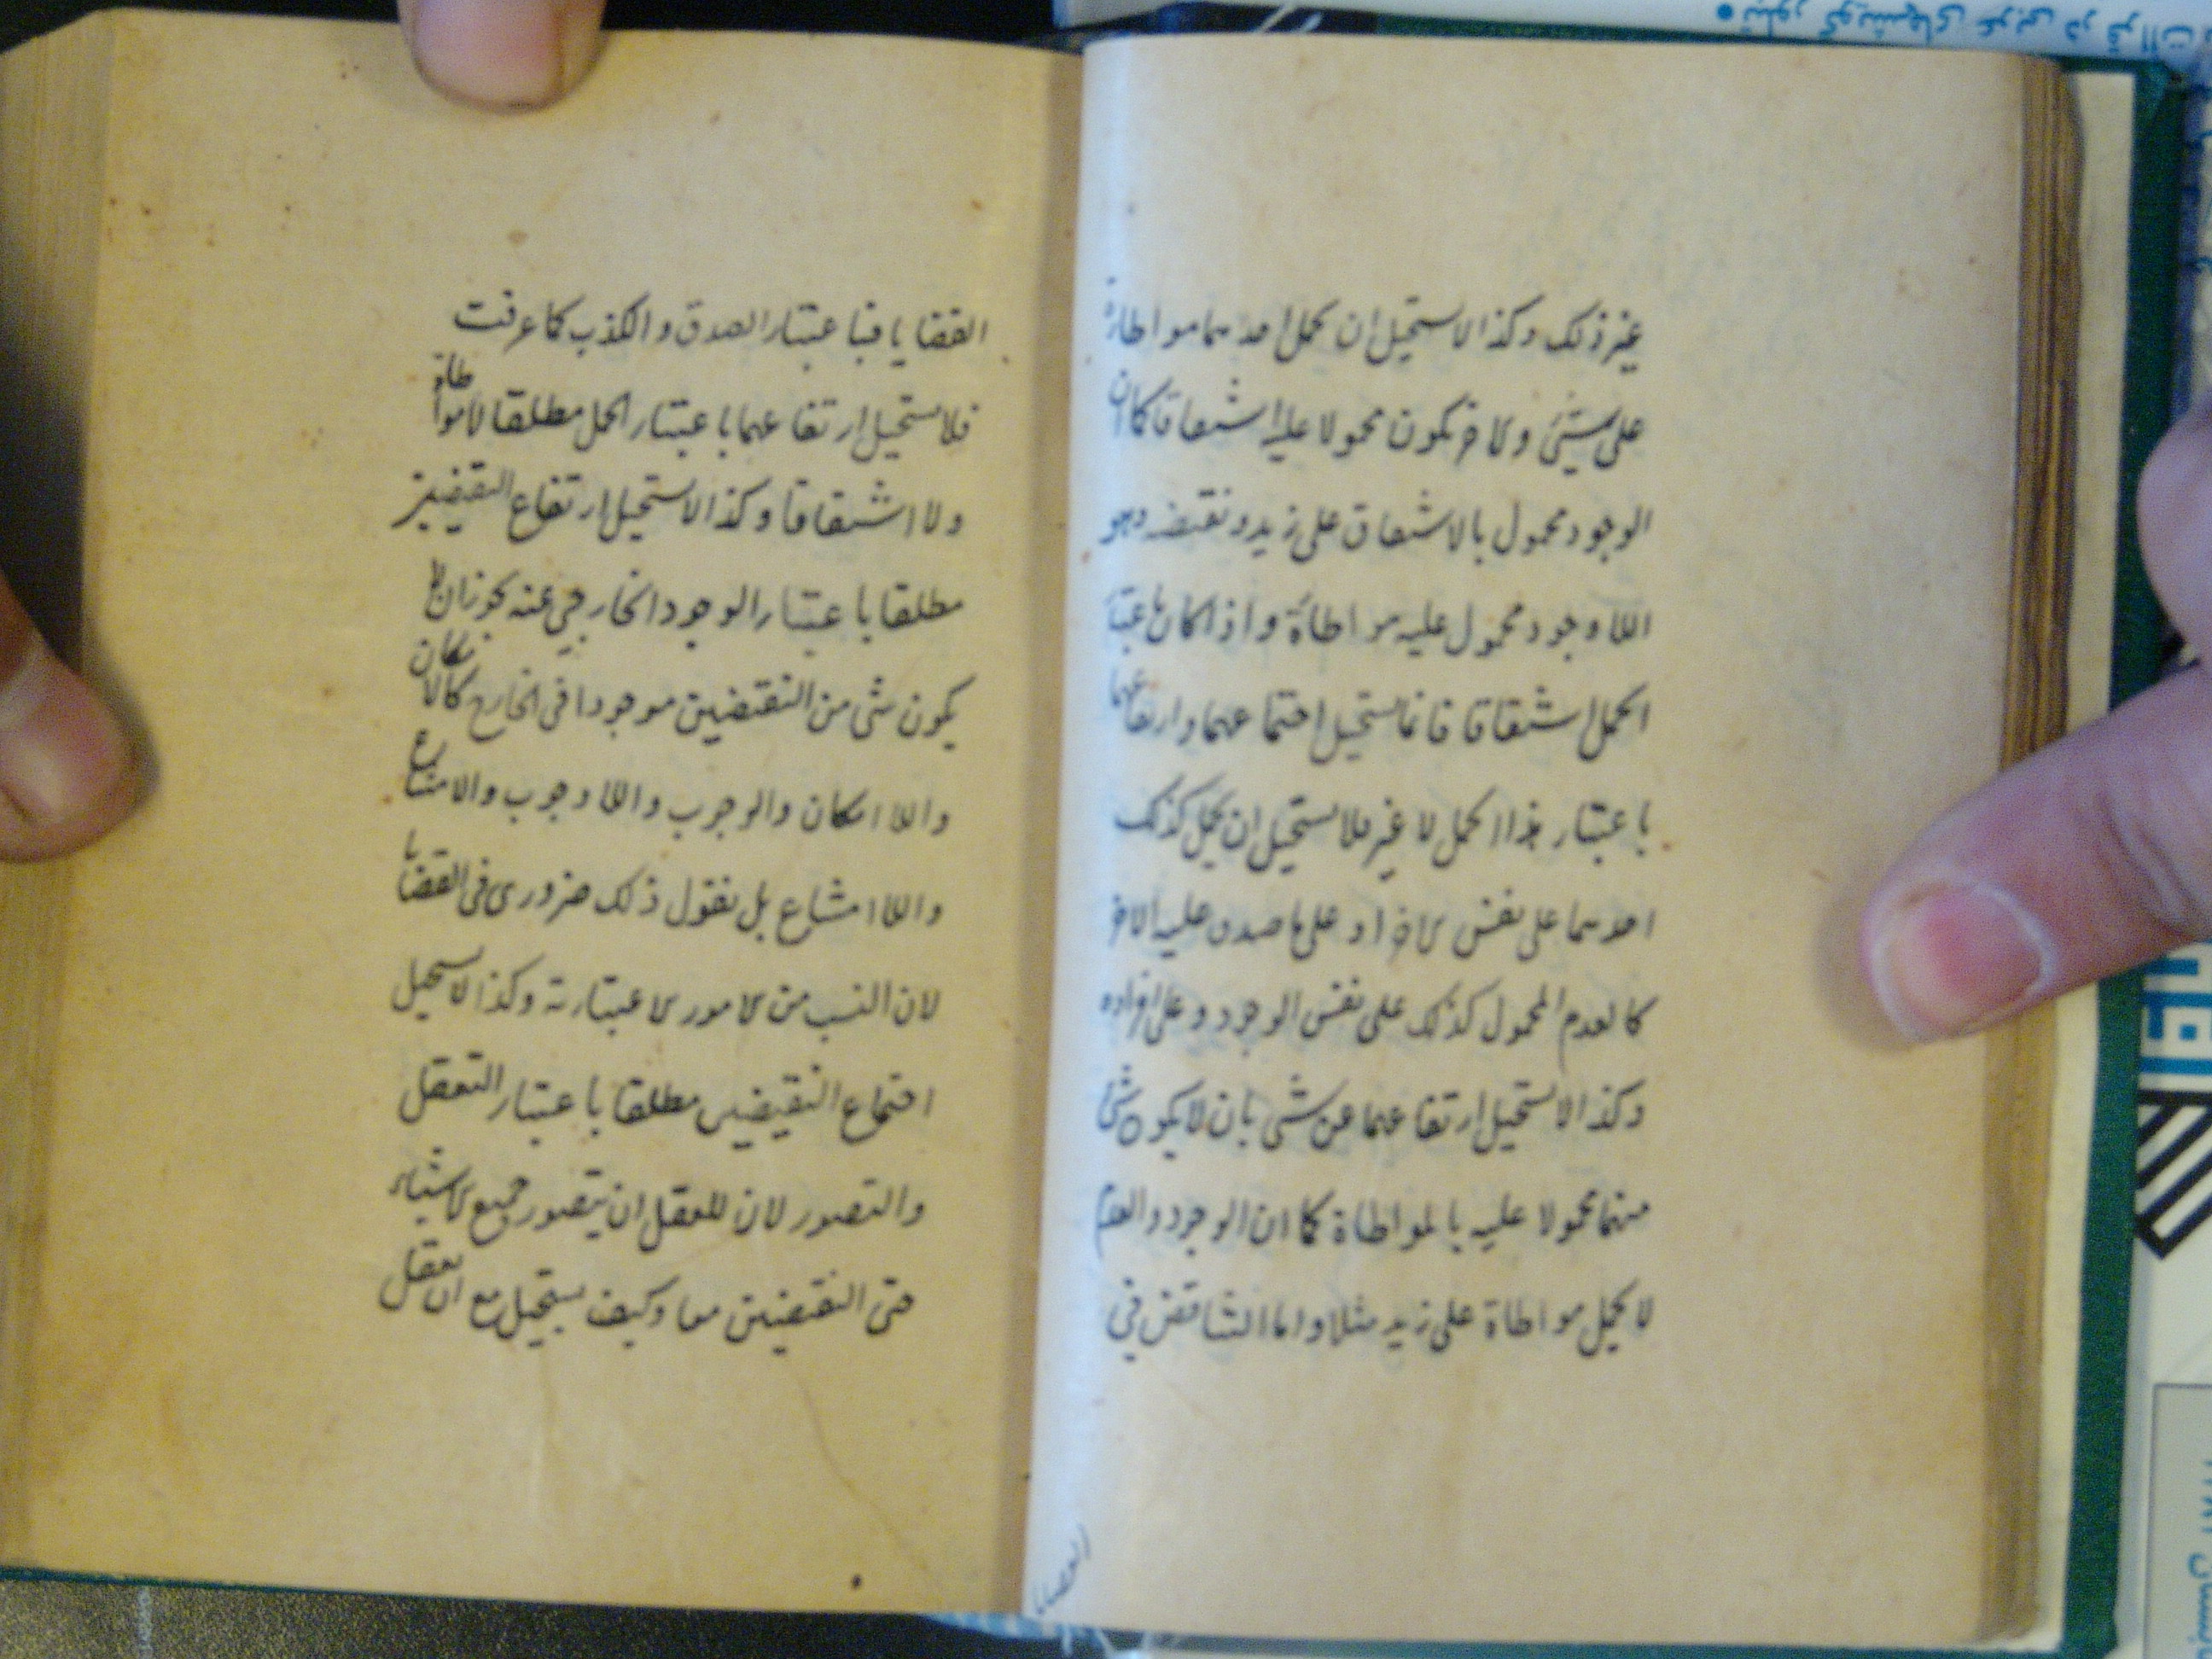 غير ذلك وكذا لا يستحيل ان يحمل احدهما مواطاة
على شيئ والاخر يكون محمولا عليه اشتقاقا كما ان
الوجود محمول بالاشتقاق على زيد ونقيضه وهو
اللاوجود محمول عليه مواطاة واذا كان باعتبار
الحمل اشتقاقا فانما يستحيل اجتماعهما وارتفاعهما
باعتبار هذا الحمل لا غير فلا يستحيل ان يحمل كذلك
احدهما على نفس الاخر او على ما صدق عليه الاخر
كالعدم المحمول كذلك على نفس الوجود وعلى افراده
وكذا لا يستحيل ارتفاعهما عن شى بان لا يكون شئ
منهما محمولا عليه بالمواطاة كما ان الوجود والعدم
لا يحمل مواطاة على زيد مثلا واما التناقض في
القضايا
القضايا فباعتبار الصدق والكذب كما عرفت
فلا يستحيل ارتفاعهما باعتبار الحمل مطلقا لا مواطاة
ولا اشتقاقا وكذا لا يستحيل ارتفاع النقيضين
مطلقا باعتبار الوجود الخارجي عنه يجوز ان لا
يكون شى من النقيضين موجودا في الخارج كالامكان
واللاامكان والوجوب واللاوجوب والامتناع
واللاامتناع بل نقول ذلك ضرورى فى القضايا
لان النسب من الامور الاعتبارية وكذا لا يستحيل
اجتماع النقيضين مطلقا باعتبار التعقل
والتصور لان للعقل ان يتصور جميع الاشياء
حتى النقيضين معا وكيف يستحيل مع ان تعقل